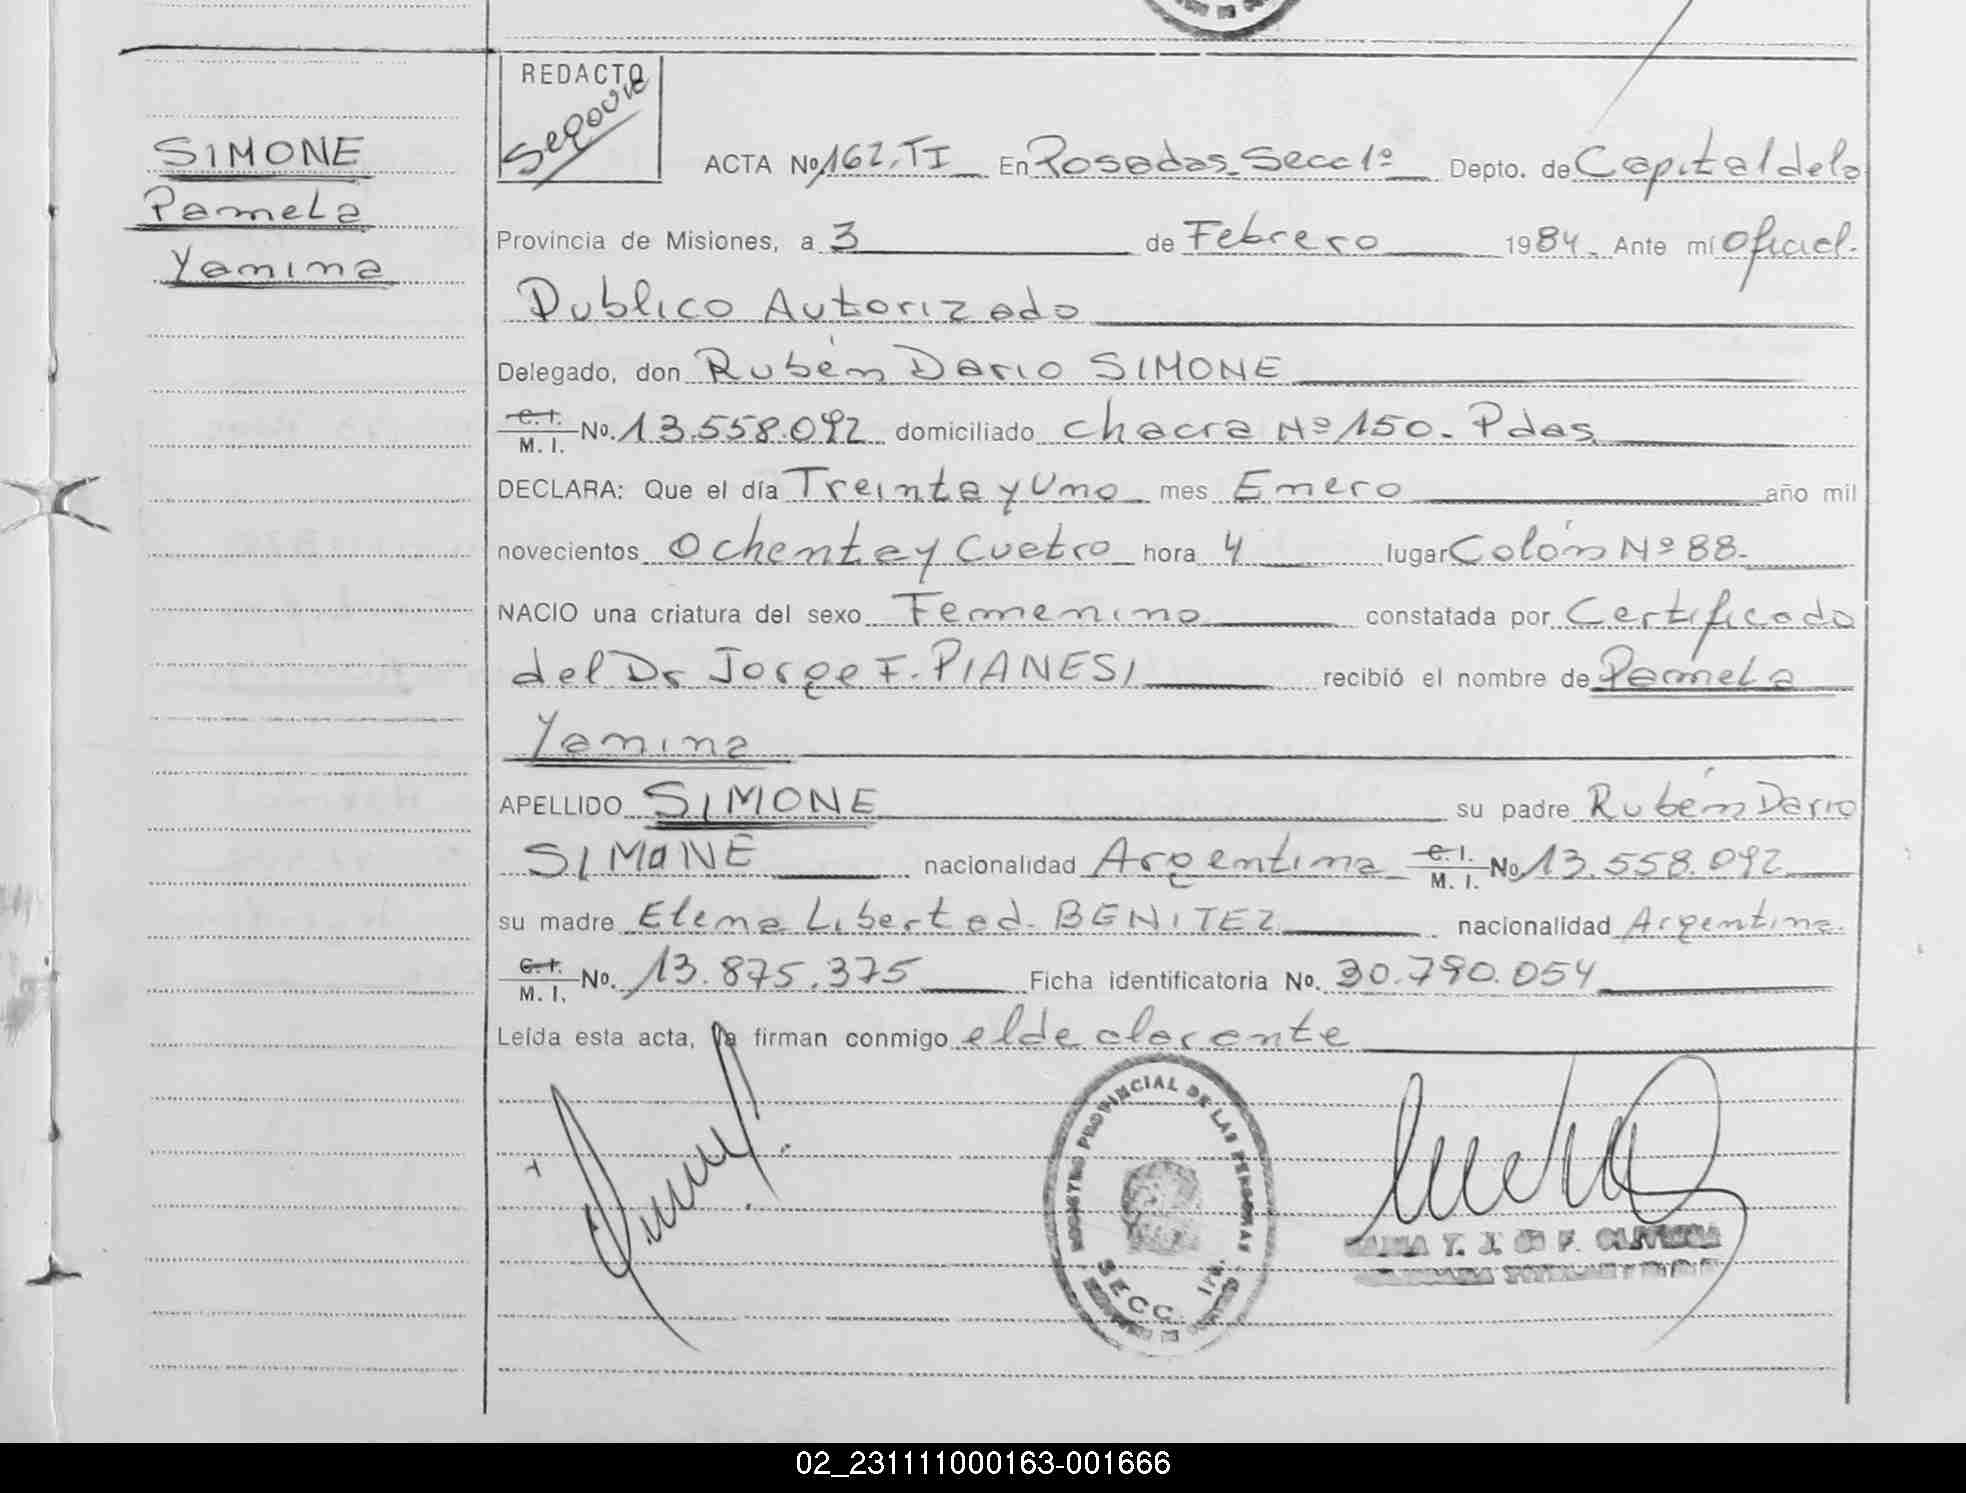 SIMONE
Pamela
Yamina
REDACTO
Segovia
ACTA No 162.TI En Posadas. Secc 1º Depto. de Capital dela
Provincia de Misiones, a 3 de Febrero 1984. Ante mí Oficial.
Publico Autorizado
Delegado, don Rubén Dario SIMONE
C.I. / M. I. No. 13.558.092 domiciliado chacra Nº 150. Pdas
DECLARA: Que el día Treinta y Uno mes Enero año mil
novecientos Ochenta y Cuatro hora 4 lugar Colón Nº 88.
NACIO una criatura del sexo Femenino constatada por Certificado
del Dr Jorge F. PIANESI recibió el nombre de Pamela
Yamina
APELLIDO SIMONE su padre Rubén Dario
SIMONE nacionalidad Argentina C.I. / M. I. No 13.558.092
su madre Elena Libertad. BENITEZ nacionalidad Argentina.
C.I. / M. I. No. 13.875.375 Ficha identificatoria No. 30.790.054
Leída esta acta, la firman conmigo el declarante
REGISTRO PROVINCIAL DE LAS PERSONAS
SECC. 1ra.
02_231111000163-001666